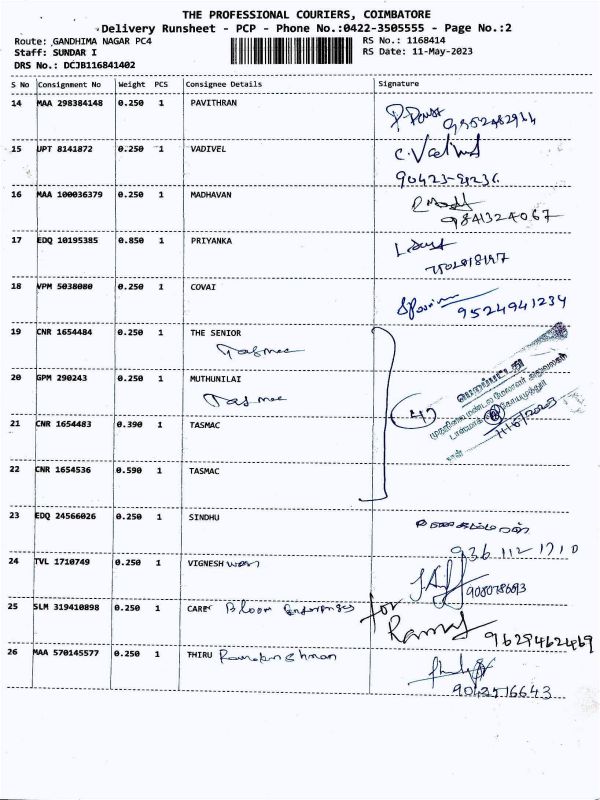 THE PROFESSIONAL COURIERS, COIMBATORE
Delivery Runsheet - PCP - Phone No.:0422-3505555 - Page No.:2
Route: GANDHIMA NAGAR PC4 RS No.: 1168414
Staff: SUNDAR I RS Date: 11-May-2023
DRS No.: DCJB116841402
S No Consignment No Weight PCS Consignee Details Signature
14 MAA 298384148 0.250 1 PAVITHRAN
15 UPT 8141872 0.250 1 VADIVEL C. Vadivel
16 MAA 100036379 0.250 1 MADHAVAN
9841324067
17 EDQ 10195385 0.850 1 PRIYANKA
18 VPM 5038080 0.250 1 COVAI
9524941234
19 CNR 1654484 0.250 1 THE SENIOR
Tasmac
20 GPM 290243 0.250 1 MUTHUNILAI
Tasmac
பெறப்பட்டது
21 CNR 1654483 0.390 1 TASMAC
22 CNR 1654536 0.590 1 TASMAC
23 EDQ 24566026 0.250 1 SINDHU
936 112 1710
24 TVL 1710749 0.250 1 VIGNESH
25 SLM 319410898 0.250 1 CARER Bloom Enterprises for
9629462469
26 MAA 570145577 0.250 1 THIRU Ramakrishnan
9042516643